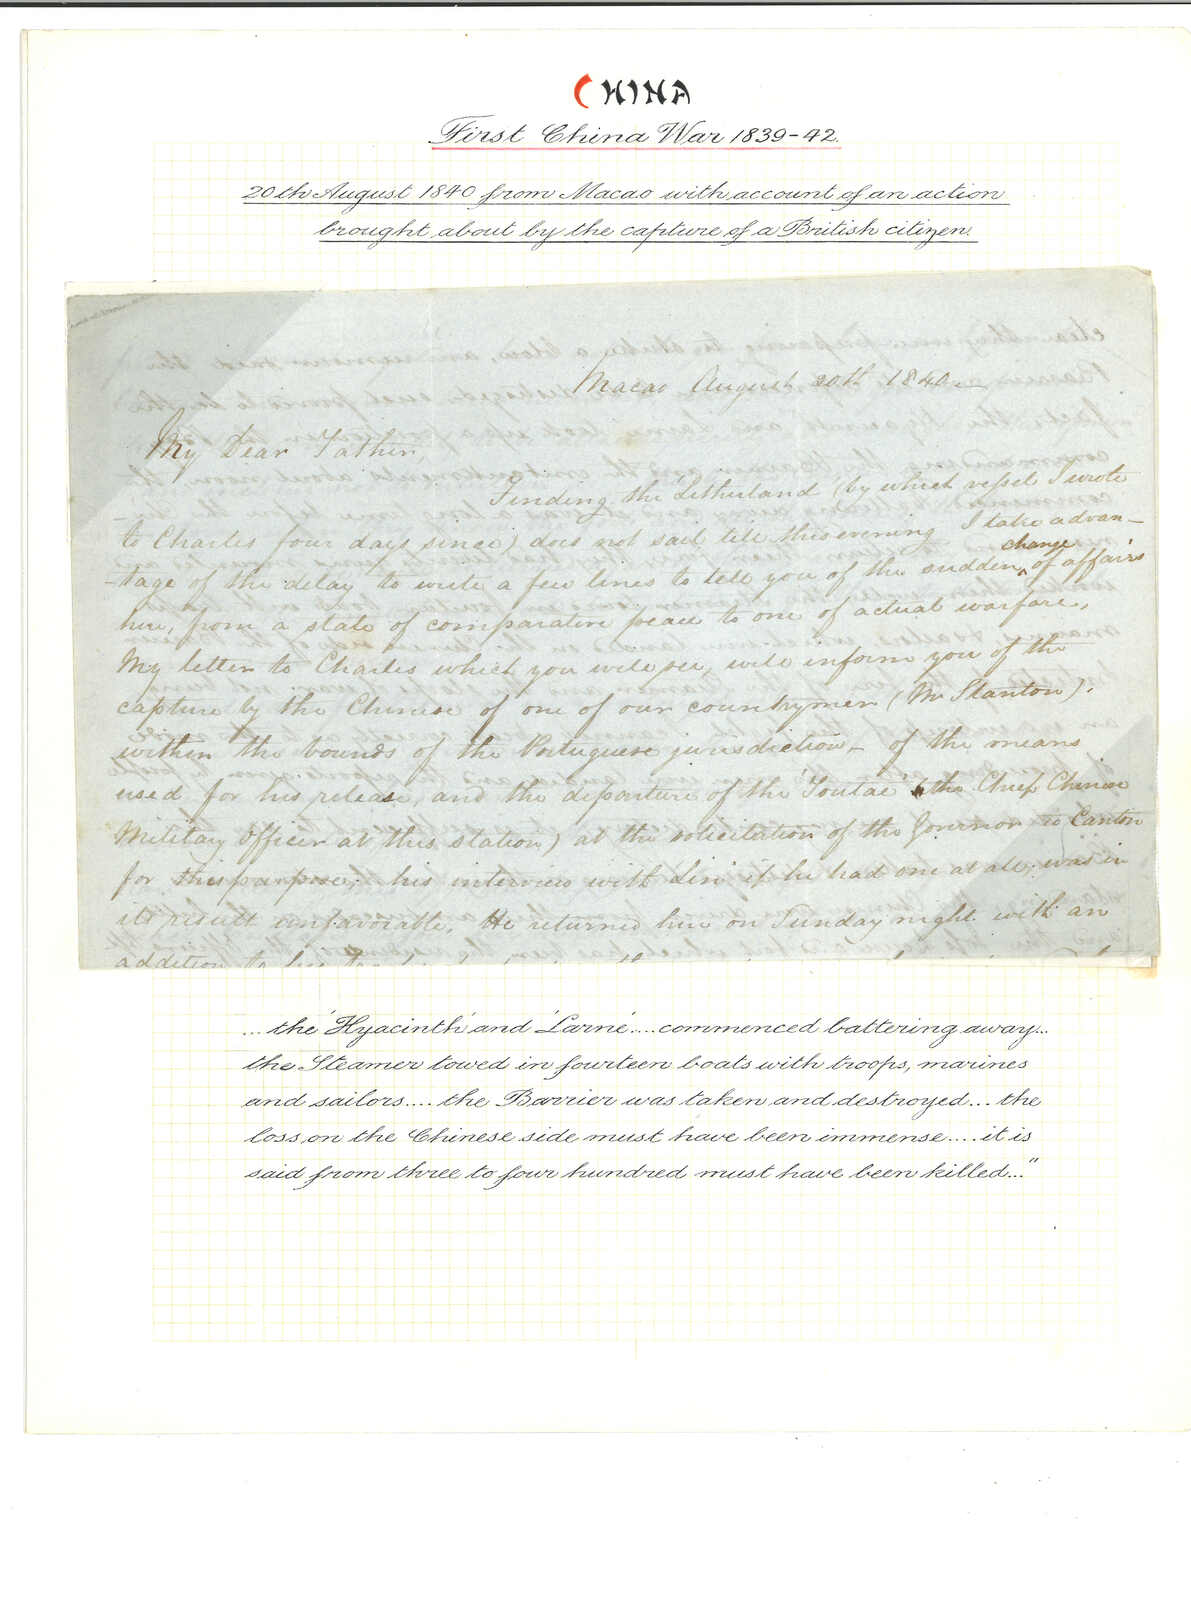 CHINA
First China War 1839-42.
20th August 1840 from Macao with account of an action
brought about by the capture of a British citizen.
Macao August 20th 1840.
My Dear Father,
Finding the 'Litherland' (by which vessel I wrote
to Charles four days since) does not sail till this evening I take advan-
-tage of the delay to write a few lines to tell you of the sudden change of affairs
here, from a state of comparative peace to one of actual warfare,
My letter to Charles which you will see, will inform you of the
capture by the Chinese of one of our countrymen (Mr Stanton),
within the bounds of the Portuguese jurisdiction - of the means
used for his release, and the departure of the 'Toutae' (the Chief Chinese
Military Officer at this station) at the solicitation of the Governor to Canton
for this purpose; his interview with 'Lin' if he had one at all, was in
its result unfavorable. He returned here on Sunday night with an
addition to his
...the 'Hyacinth' and 'Larne'....commenced battering away...
the Steamer towed in fourteen boats with troops, marines
and sailors.... the Barrier was taken and destroyed... the
loss on the Chinese side must have been immense.... it is
said from three to four hundred must have been killed..."